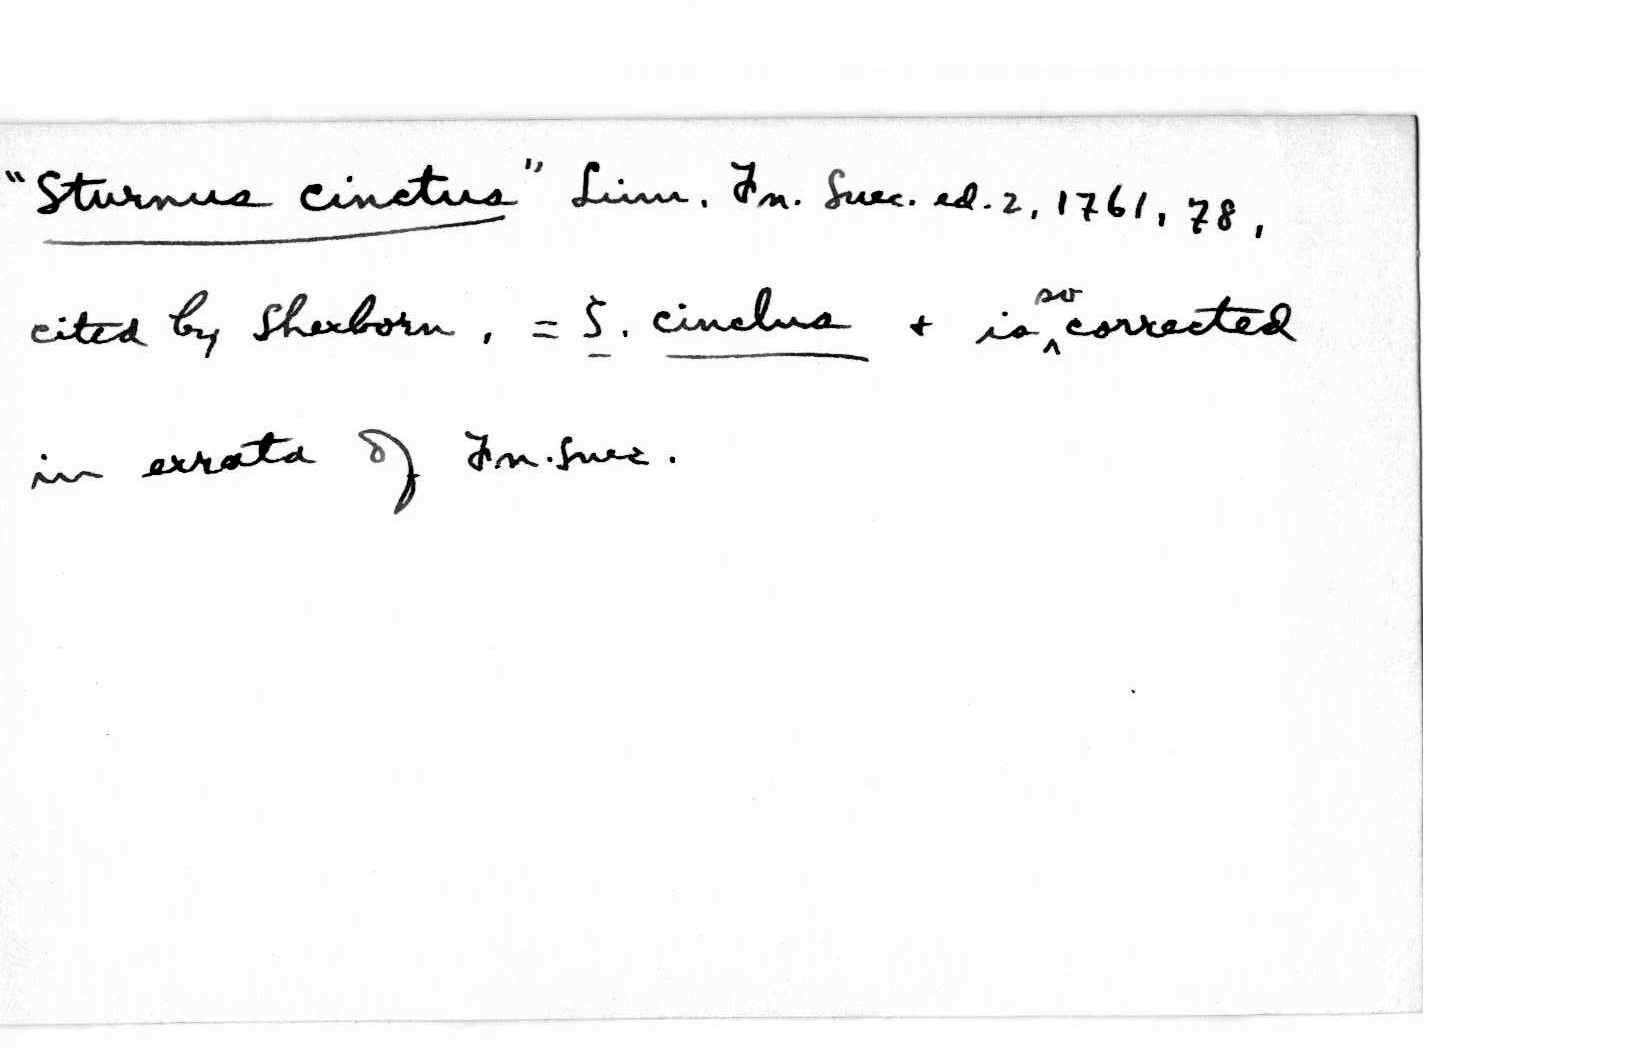 "Sturnus cinctus" Linn. Fn. Suec. ed. 2, 1761, 78,
cited by Sherborn, = S. cinclus + is so corrected
in errata of Fn. Suec.